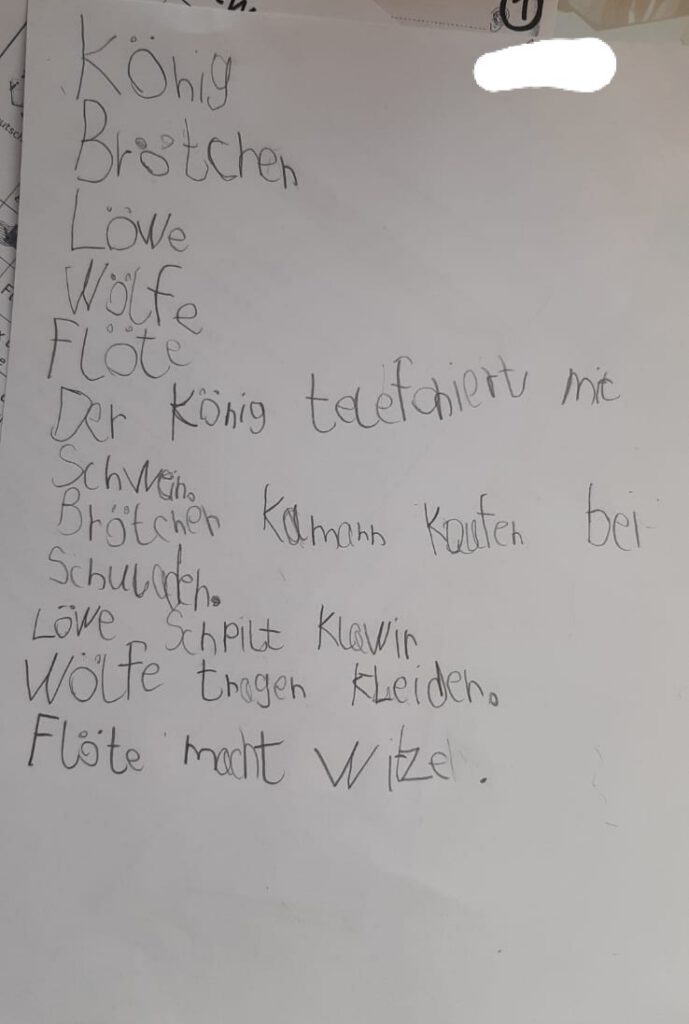 1
König
Brötchen
Löwe
Wölfe
Flöte
Der König telefoniert mit
Schwein.
Brötchen Kamann Kaufen bei
Schuladen.
Löwe Schpilt Klawir
Wölfe tragen Kleider.
Flöte macht Witze.